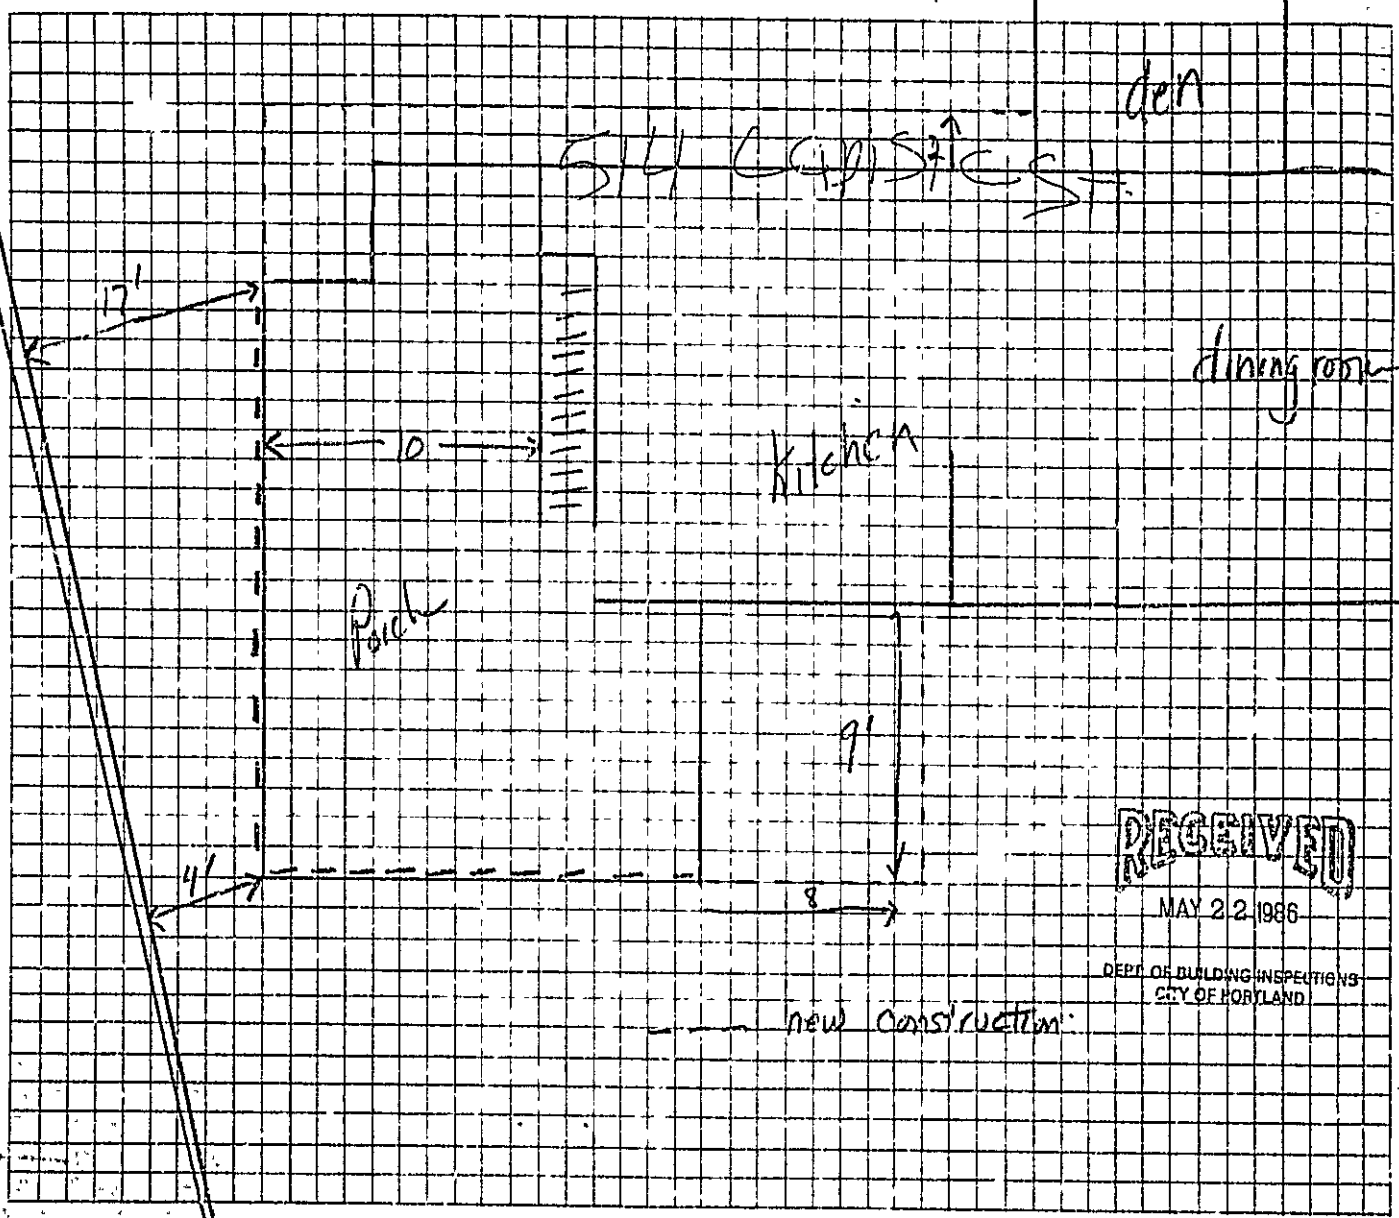 den
514 St.
17'
dining room
10
Kitchen
Porch
9'
4'
8
RECEIVED
MAY 22 1986
DEPT OF BUILDING INSPECTIONS
CITY OF PORTLAND
new construction